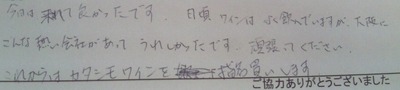 今日は来れて良かったです。日頃ワインはよく飲んでいますが、大阪に
こんな熱い会社があってうれしかったです。頑張ってください。
これからはカタシモワインを指名買いします
ご協力ありがとうございました